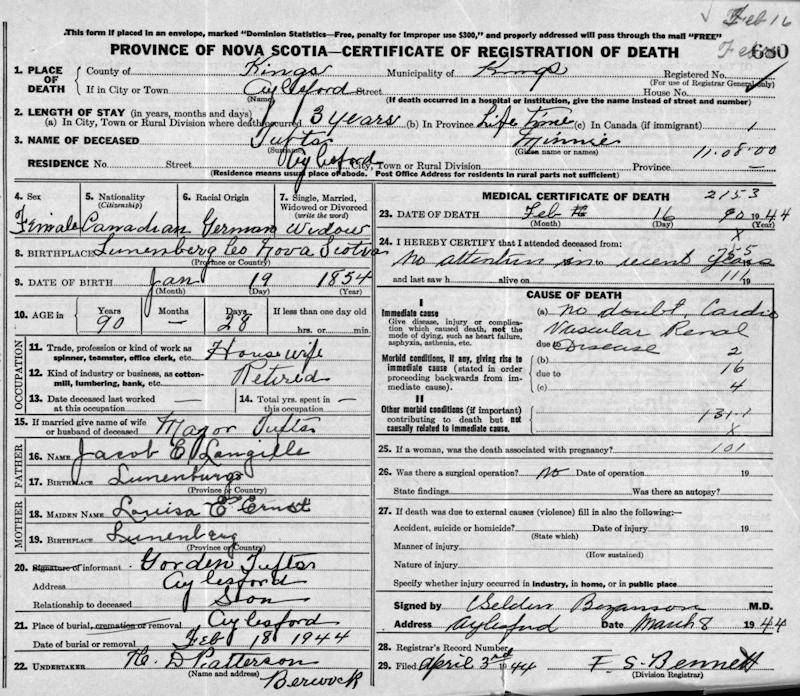 Feb 16
This form if placed in an envelope, marked "Dominion Statistics—Free, penalty for improper use $300," and properly addressed will pass through the mail "FREE"
PROVINCE OF NOVA SCOTIA—CERTIFICATE OF REGISTRATION OF DEATH
680
1. PLACE OF DEATH
County of Kings Municipality of Kings Registered No.
(For use of Registrar General only)
If in City or Town Aylesford Street House No.
(Name) (If death occurred in a hospital or institution, give the name instead of street and number)
2. LENGTH OF STAY (in years, months and days)
(a) In City, Town or Rural Division where death occurred 3 years (b) In Province Life Time (c) In Canada (if immigrant) 1
3. NAME OF DECEASED Tufts Minnie
(Surname) (Given or names) 11.08.00
RESIDENCE No. Street Aylesford City, Town or Rural Division Province —
(Residence means usual place of abode. Post Office Address for residents in rural parts not sufficient)
4. Sex
Female
5. Nationality
(Citizenship)
Canadian
6. Racial Origin
German
7. Single, Married, Widowed or Divorced
(write the word)
Widow
8. BIRTHPLACE Lunenberg Co Nova Scotia
(Province or Country)
9. DATE OF BIRTH Jan 19 1854
(Month) (Day) (Year)
10. AGE in Years Months Days If less than one day old
90 — 28 hrs. or min.
OCCUPATION
11. Trade, profession or kind of work as spinner, teamster, office clerk, etc. Housewife
12. Kind of industry or business, as cotton-mill, lumbering, bank, etc. Retired
13. Date deceased last worked at this occupation —
14. Total yrs. spent in this occupation —
15. If married give name of wife or husband of deceased Major Tufts
FATHER
16. NAME Jacob E Langille
17. BIRTHPLACE Lunenburg
(Province or Country)
MOTHER
18. MAIDEN NAME Louisa E Ernst
19. BIRTHPLACE Lunenberg
(Province or Country)
20. Signature of informant Gorden Tufts
Address Aylesford
Relationship to deceased Son
21. Place of burial, cremation or removal Aylesford
Date of burial or removal Feb 18 1944
22. UNDERTAKER H. D Patterson
(Name and address) Berwock
MEDICAL CERTIFICATE OF DEATH 2153
23. DATE OF DEATH Feb 16 90 1944
(Month) (Day) (Year)
x
24. I HEREBY CERTIFY that I attended deceased from:
No attention in recent years
and last saw h alive on 111 19
CAUSE OF DEATH
I
Immediate cause
Give disease, injury or complication which caused death, not the mode of dying, such as heart failure, asphyxia, asthenia, etc.
(a) No doubt, Cardio
Vascular Renal
due to Disease 2
Morbid conditions, if any, giving rise to immediate cause (stated in order proceeding backwards from immediate cause).
(b) 16
due to
(c) 4
II
Other morbid conditions (if important) contributing to death but not causally related to immediate cause.
131.1
x
25. If a woman, was the death associated with pregnancy? 101
26. Was there a surgical operation? No Date of operation 19
State findings Was there an autopsy?
27. If death was due to external causes (violence) fill in also the following:—
Accident, suicide or homicide? Date of injury 19
(State which)
Manner of injury
(How sustained)
Nature of injury
Specify whether injury occurred in industry, in home, or in public place
Signed by Selden Bezanson M.D.
Address Aylesford Date March 8 1944
28. Registrar's Record Number
29. Filed April 3rd 1944 F. S. Bennett
(Division Registrar)